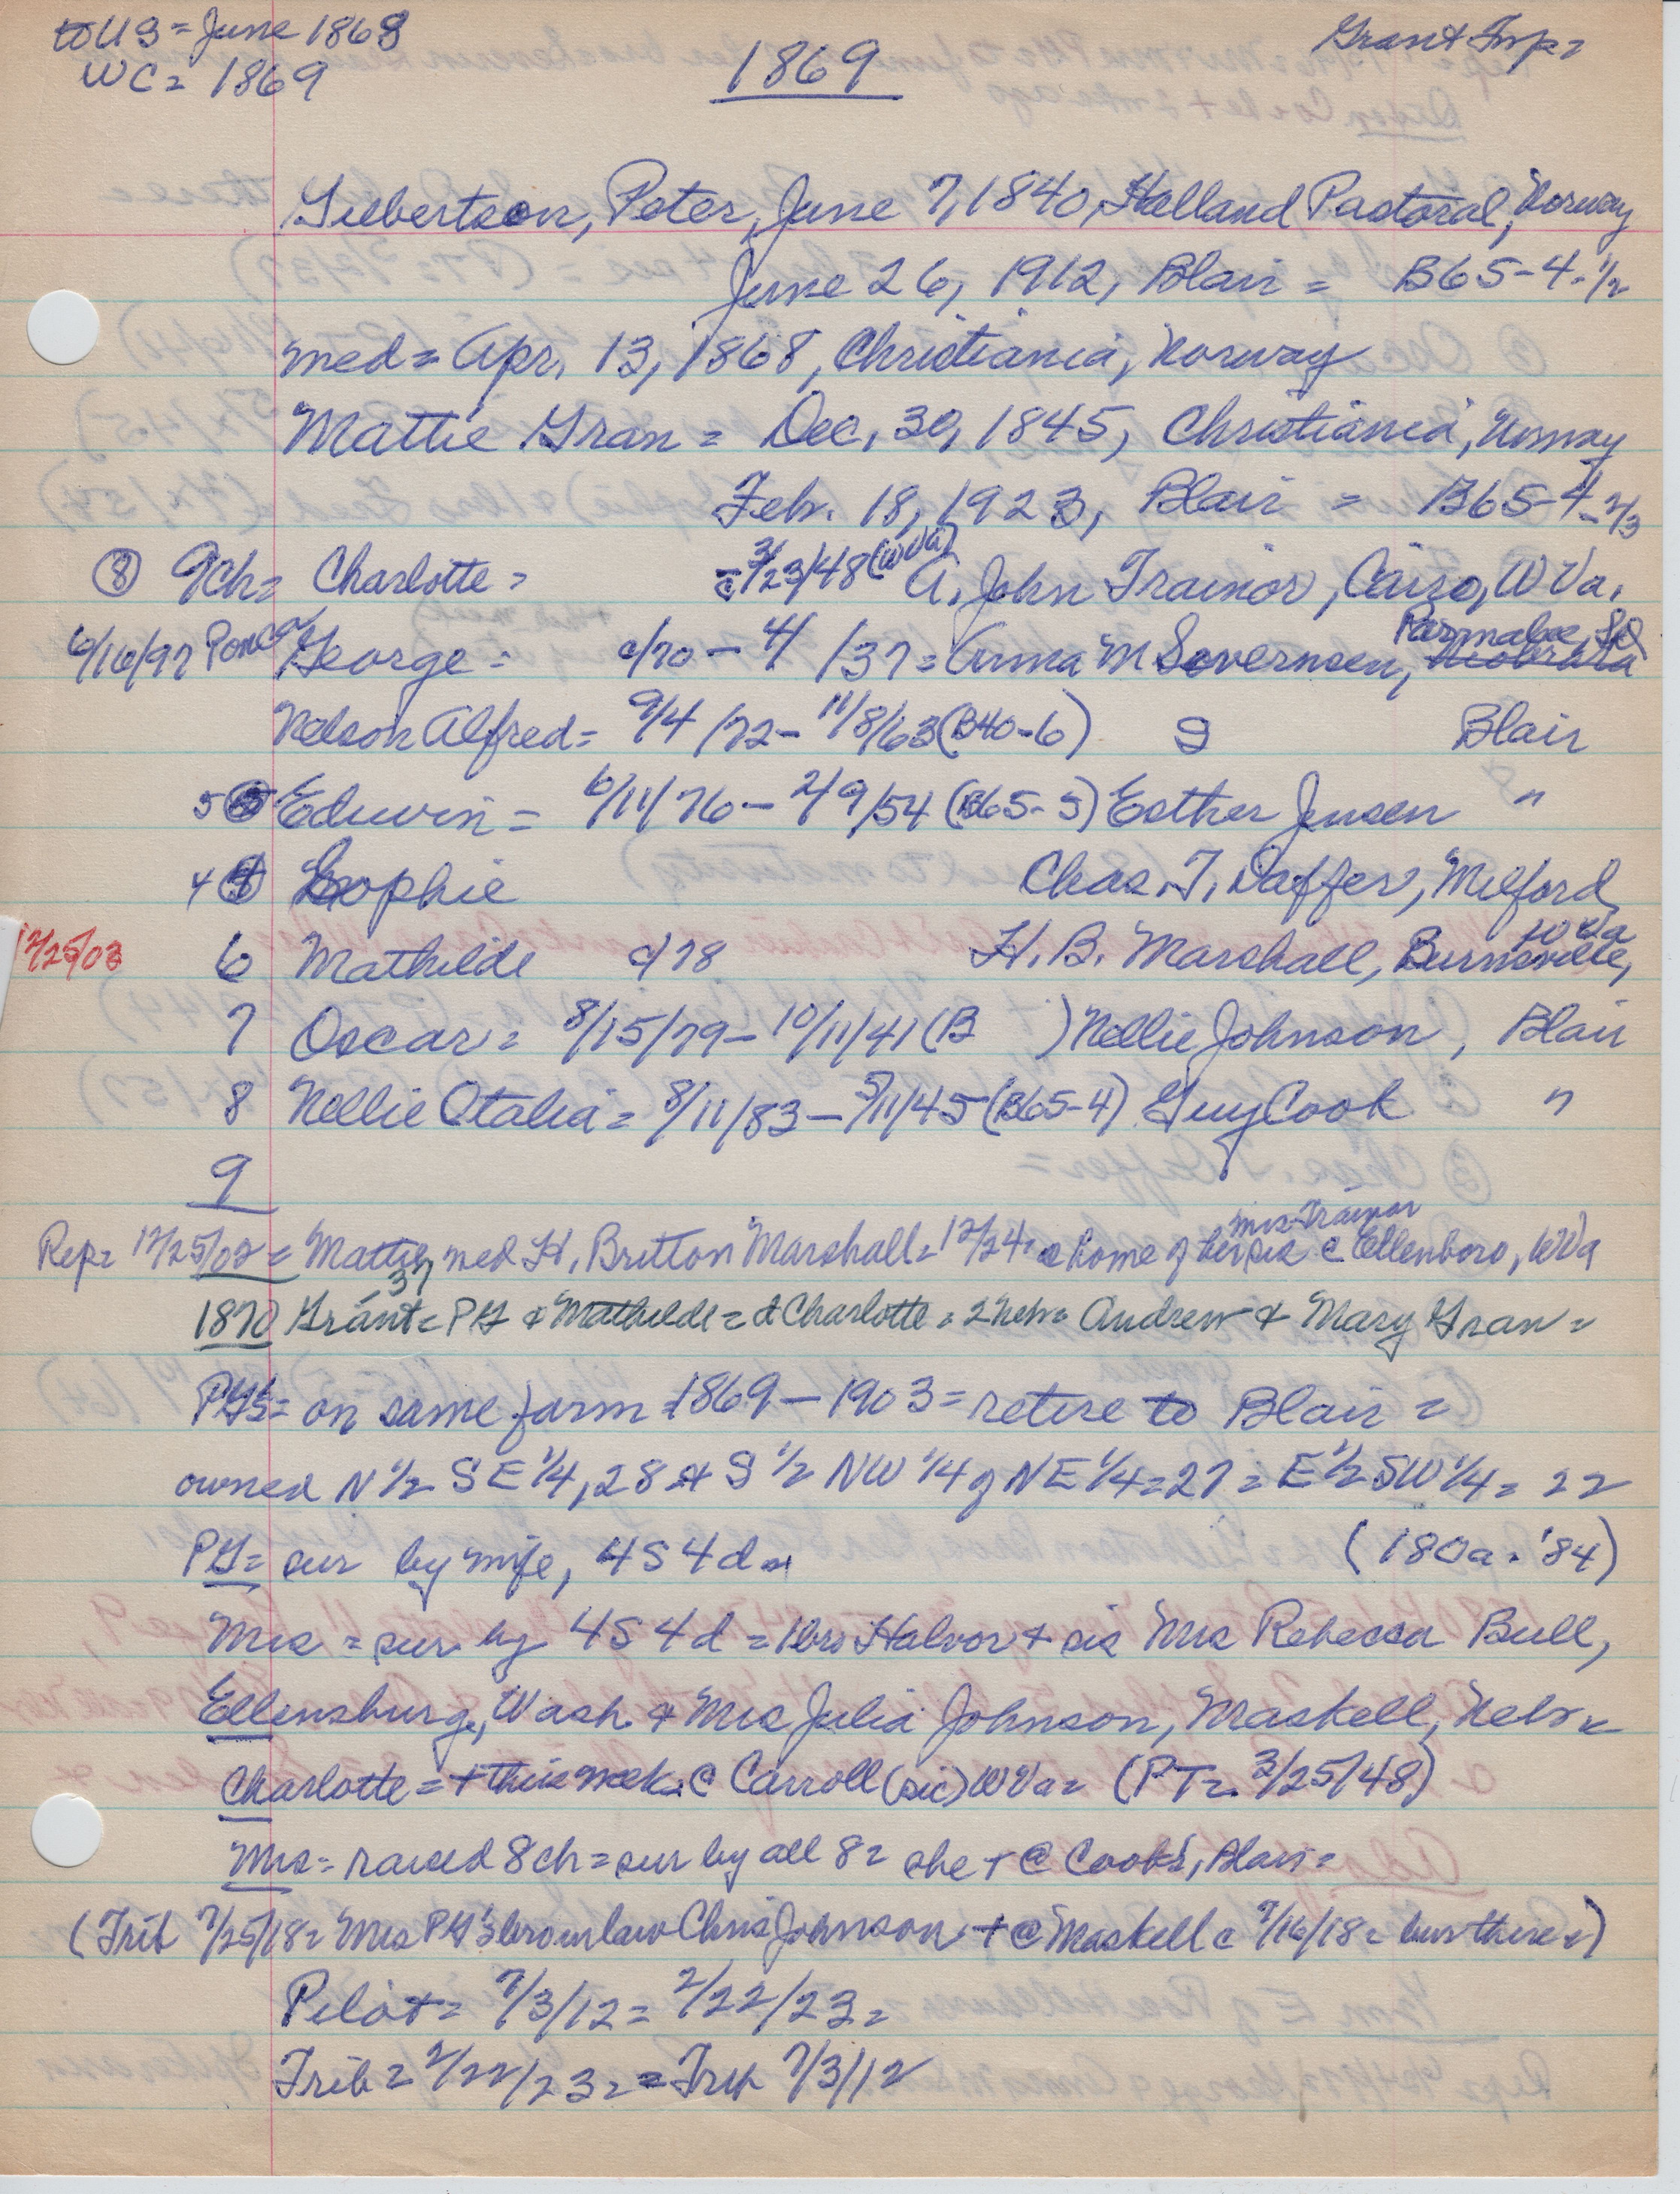 to US = June 1869
WC = 1869
1869
Grant Twp =
Gilbertson, Peter, June 7, 1840, Halland Pastoral, Norway
June 26, 1912, Blair = B65-4-1/2
med = Apr. 13, 1868, Christiania, Norway
Mattie Gran = Dec, 30, 1845, Christiania, Norway
Feb. 18, 1923, Blair = B65-4-2/3
⑧ 9ch = Charlotte = = 3/23/48 (WVa) A. John Trainor, Cairo, W Va.
6/16/97 Ponca George = c/70 - 4/ /37 = Anna M Severnsen, Parmalee, SD
Nelson Alfred = 9/4/72 - 11/8/63 (B40-6) S Blair
5 Edwin = 6/11/76 - 2/9/54 (B65-5) Esther Jensen "
4 Sophie Chas. T. Daffer, Milford,
12/25/03 6 Mathilde c/78 H. B. Marshall, Burnsville, W Va
7 Oscar = 8/15/79 - 10/11/41 (B ) Nellie Johnson, Blair
8 Nellie Otalia = 8/11/83 - 5/11/45 (B65-4) Guy Cook "
9
Rep = 12/25/02 = Mattie, med H. Britton Marshall = 12/24 = @ home of her sis mrs Trainor @ Ellenboro, WVa
1870 Grant = 37 PG & Mathilde = & Charlotte = 2 Neb = Andrew & Mary Gran =
PG's = on same farm = 1869 - 1903 = retire to Blair =
owned N 1/2 SE 1/4, 28 & S 1/2 NW 1/4 of NE 1/4 = 27 = E 1/2 SW 1/4 = 22
PG = sur by wife, 4S 4d = (180a = '84)
Mrs = sur by 4S 4d = 1bro Halvor + sis Mrs Rebecca Bull,
Ellensburg, Wash. & Mrs Julia Johnson, Maskell, Nebr =
Charlotte = + this week @ Carroll (sic) WVa = (PT = 3/25/48)
Mrs = raised 8 ch = sur by all 8 = she + @ Cook's, Blair =
(Trib 7/25/18 = Mrs PG's bro in law Chris Johnson + @ Maskell @ 7/16/18 = bur there =)
Pilot = 7/3/12 = 2/22/23 =
Trib = 2/22/23 = = Trib 7/3/12